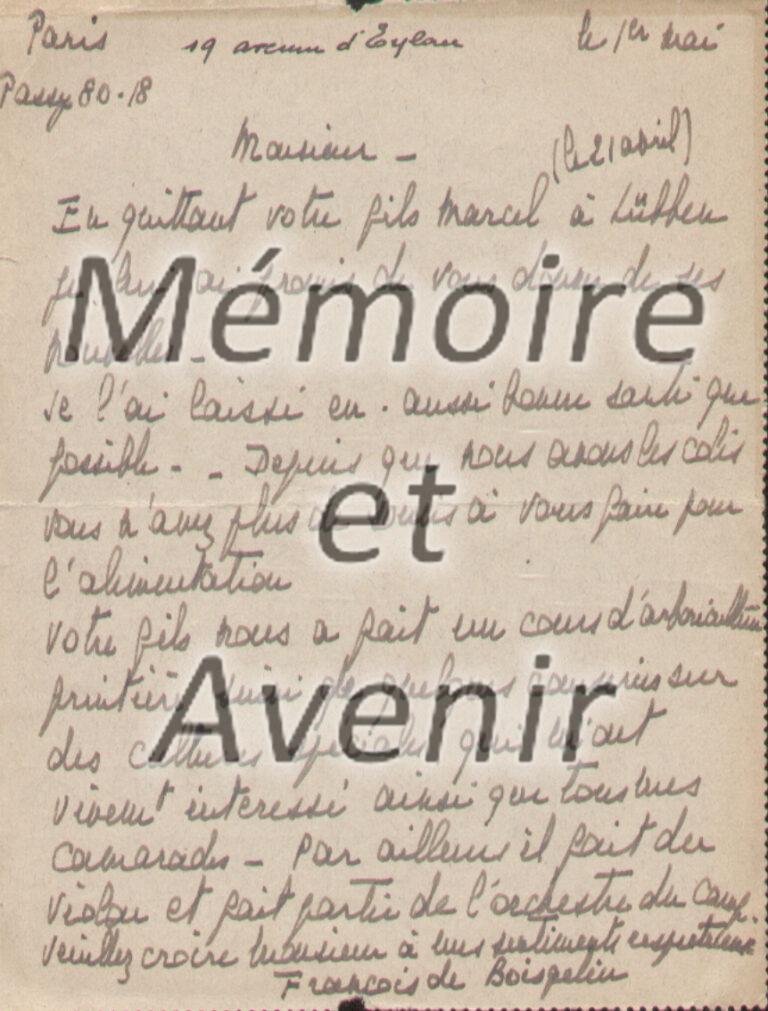 Paris 19 avenue d'Eylau le 1er mai
Passy 80.18
Monsieur - (le 21 avril)
En quittant votre fils Marcel à Lübben
je lui ai promis de vous donner de ses
nouvelles -
Je l'ai laissé en . aussi bonne santé que
possible - - Depuis que nous avons les colis
vous n'avez plus de soucis à vous faire pour
l'alimentation
Votre fils nous a fait un cours d'arboriculture
fruitière ainsi que quelques causeries sur
des cultures spéciales qui m'ont
vivemt interessé ainsi que tous mes
camarades - Par ailleurs il fait du
violon et fait partie de l'orchestre du camp.
Veuillez croire Monsieur à mes sentiments respectueux
François de Boisgelin
Mémoire
et
Avenir